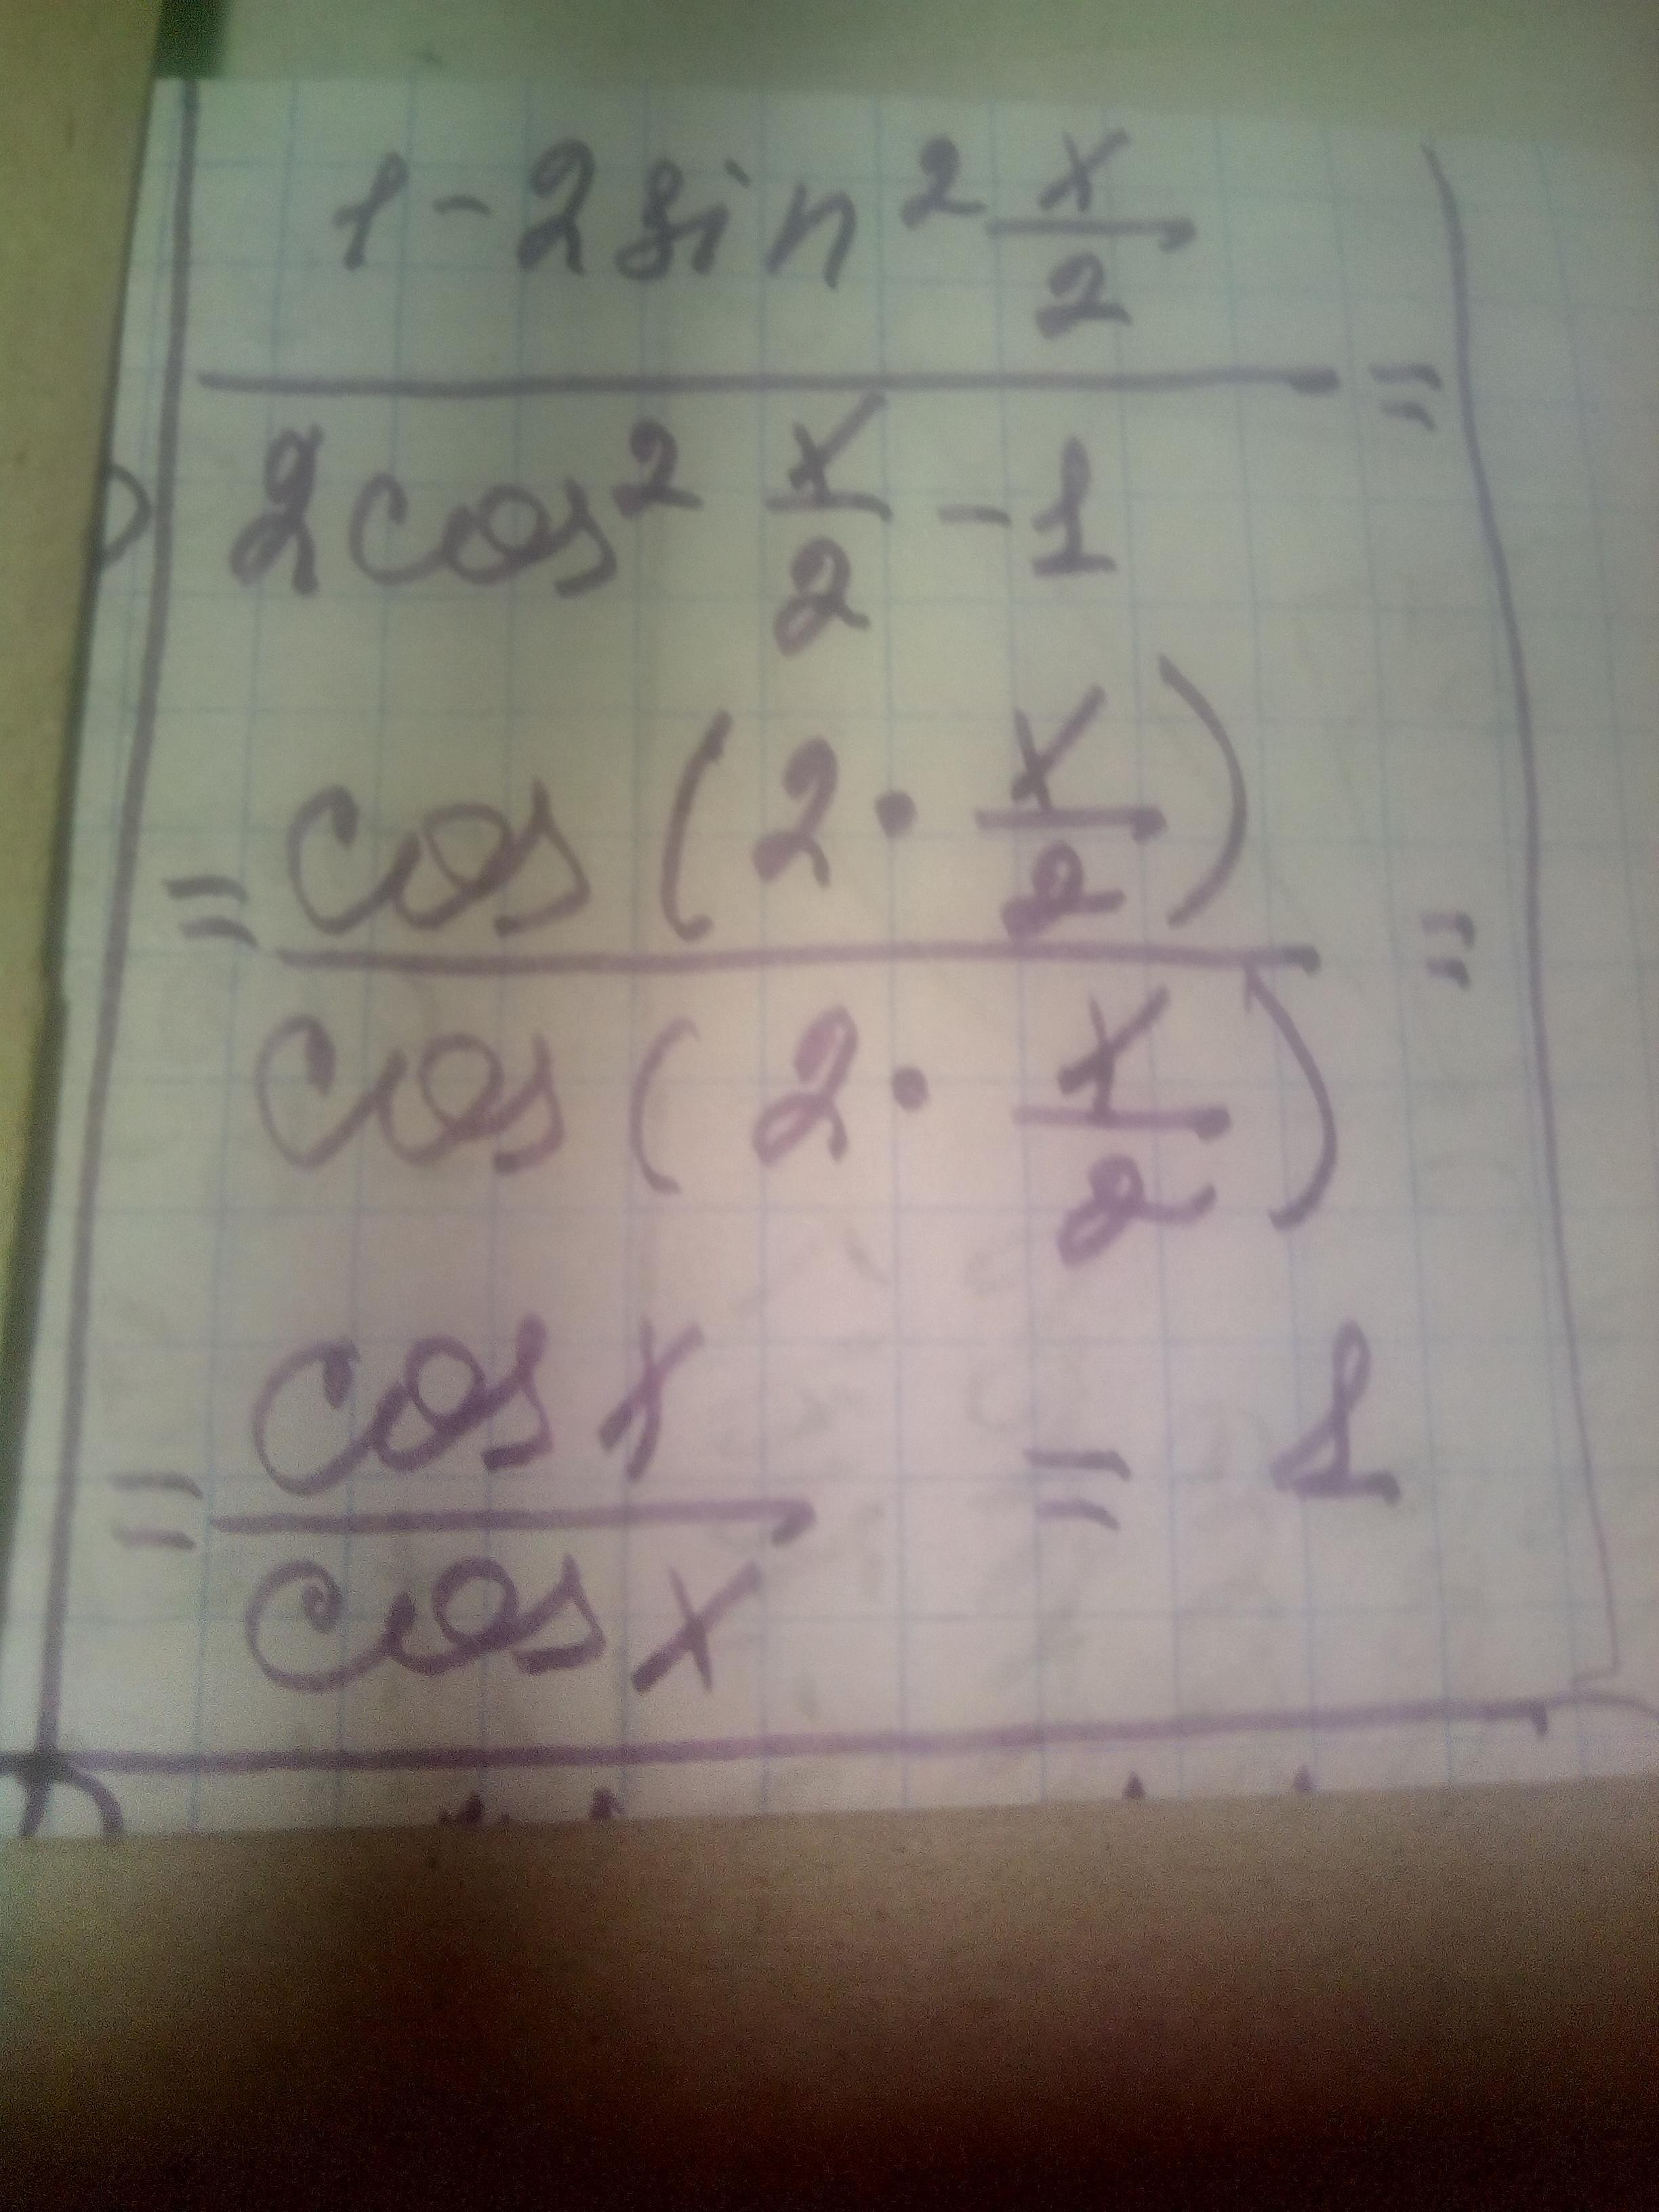 1-2sin² x/2
2cos² x/2 -1 =
= cos(2·x/2)
cos(2·x/2) =
= cos x
cos x = 1